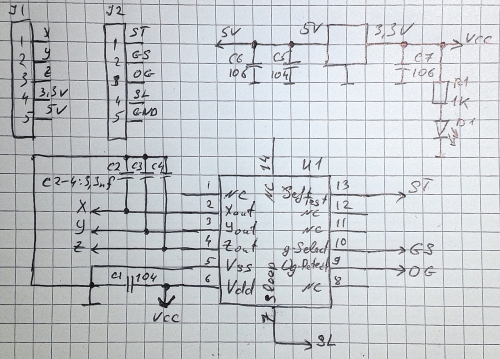 J1
X
1
Y
2
Z
3
3,3V
4
5V
5
J2
ST
1
GS
2
OG
3
SL
4
GND
5
5V
5V
3,3V
VCC
C6
106
C5
104
C7
106
R1
1K
D1
C2 C3 C4
C2-4:3,3nf
14
U1
1
NC
NC
Self
test
13
ST
X
2
Xout
NC
12
Y
3
Yout
NC
11
Z
4
Zout
g-Select
10
GS
5
Vss
0g-Detect
9
OG
C1
104
6
Vdd
NC
8
VCC
Sleep
7
SL